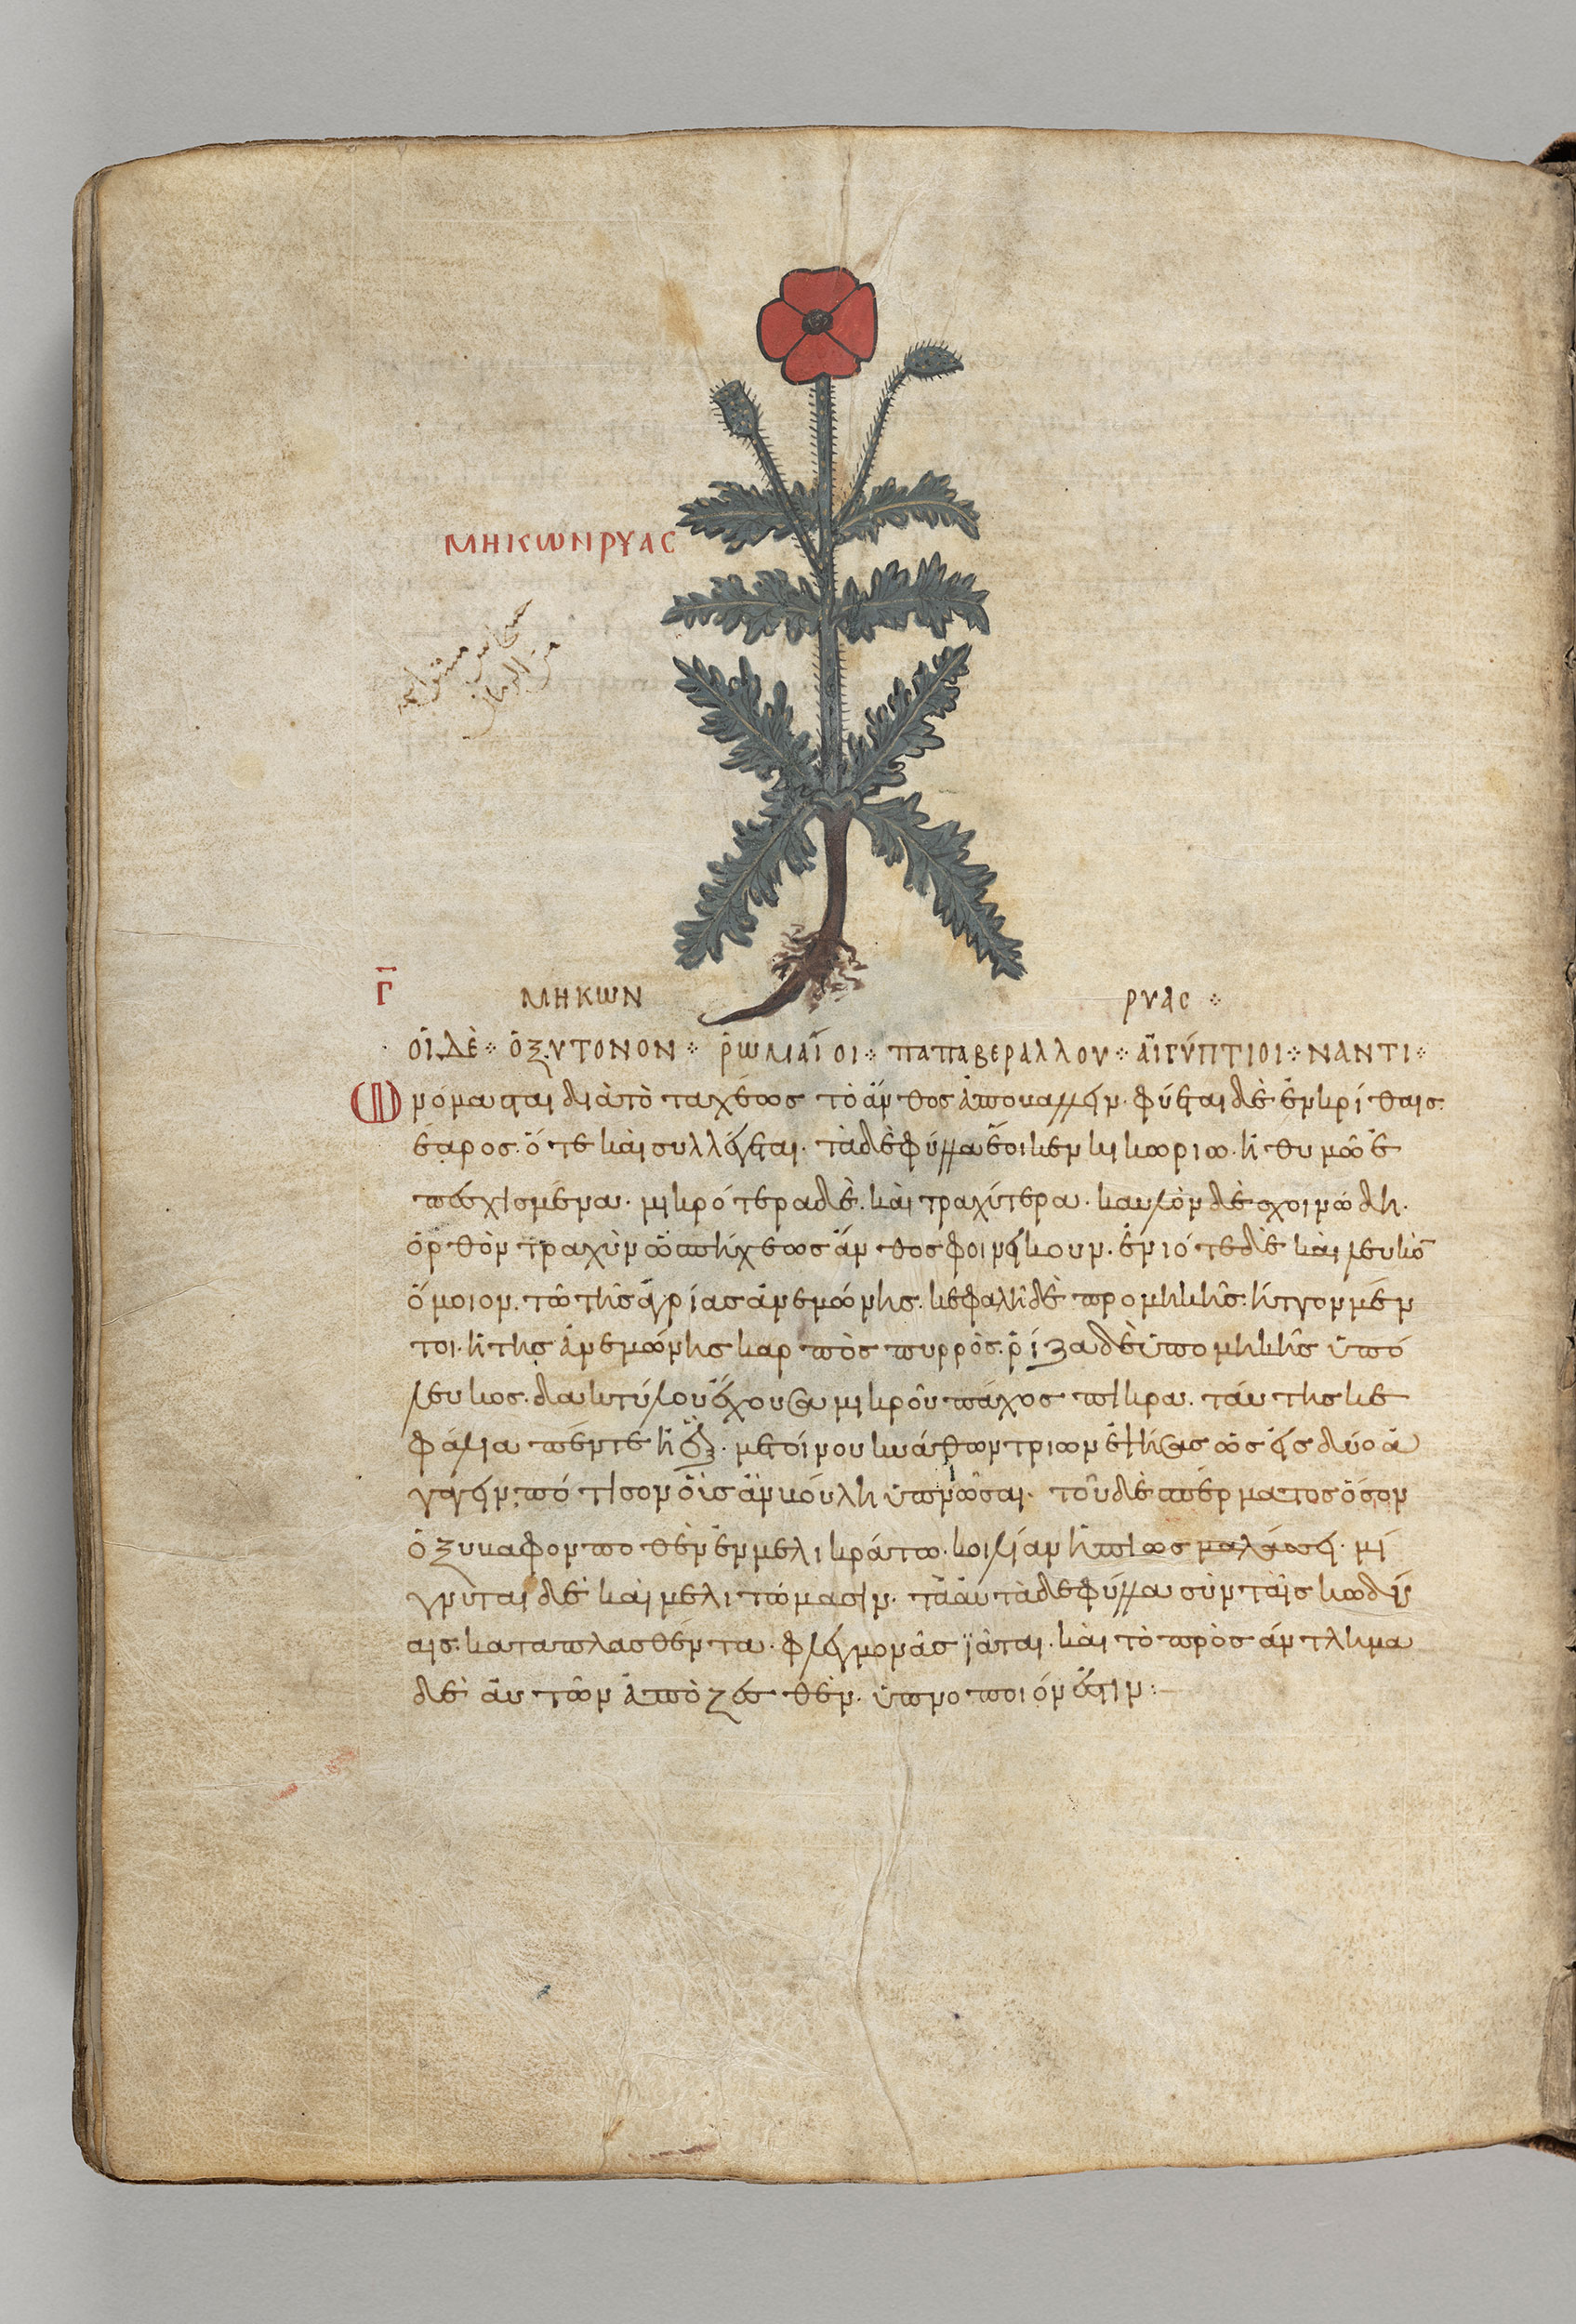 ΜΗΚΩΝ ΡΥΑС
Γ̄
ΜΗΚΩΝ ΡΥΑС
ΟἹ ΔῈ ὈΞΥΤΟΝΟΝ ῬΩΜΑῖΟΙ ΠΑΠΑΒΕΡΑΛΛΟΥ ΑἸΓΎΠΤΙΟΙ ΝΑΝΤΙ
Ὠνόμασται διὰ τὸ ταχέως τὸ ἄνθος ἀποβάλλειν· φύεται δὲ ἐν κριθαῖς
ἔαρος· ὅτε καὶ συλλέγεται· τὰ δὲ φύλλα ἔοικεν κικωρίω· ἢ θύμω ἐ
πεσχισμένα· μικρότερα δὲ· καὶ τραχύτερα· καυλὸν δὲ σχοινώδη·
ὀρθὸν τραχὺν ὡ πήχεως ἄνθος φοινικοῦν· ἐνιότε δὲ καὶ λευκὸ̄
ὅμοιον· τῶ τῆς ἀγρίας ἀνεμώνης· κεφαλὴ δὲ προμήκης· ἧττον μέν
τοι· ἢ τῆς ἀνεμώνης καρπὸς πυρρὸς· ῥίζα δὲ ὑπομήκης ὑπό
λευκος· δακτύλου ἔχουσα μικροῦ πάχος πικρά· ταύτης κε
φάλια πέντε ἢ ἓξ· μετ οίνου κυάθων τριῶν ἑψήσας ὡς εἰς δύο ἀ
γαγεῖν, πότισον οἷς ἂν βούλη ὑπνῶσαι· τοῦ δὲ σπέρματος ὅσον
ὀξύβαφον ποθὲν ἐν μελικράτω· κοιλίαν ἠπίως μαλάσσει· μί
γνυται δὲ καὶ μελιτώμασιν· τὰ ἀυτὰ δὲ φύλλα σὺν ταῖς κωδεί
αις· καταπλασθέντα· φλεγμονὰς ἰᾶται· καὶ τὸ πρὸς άντλημα
δὲ ἀυτῶν ἀπὸζεσθὲν· ὑπνοποιόν ἐστιν: